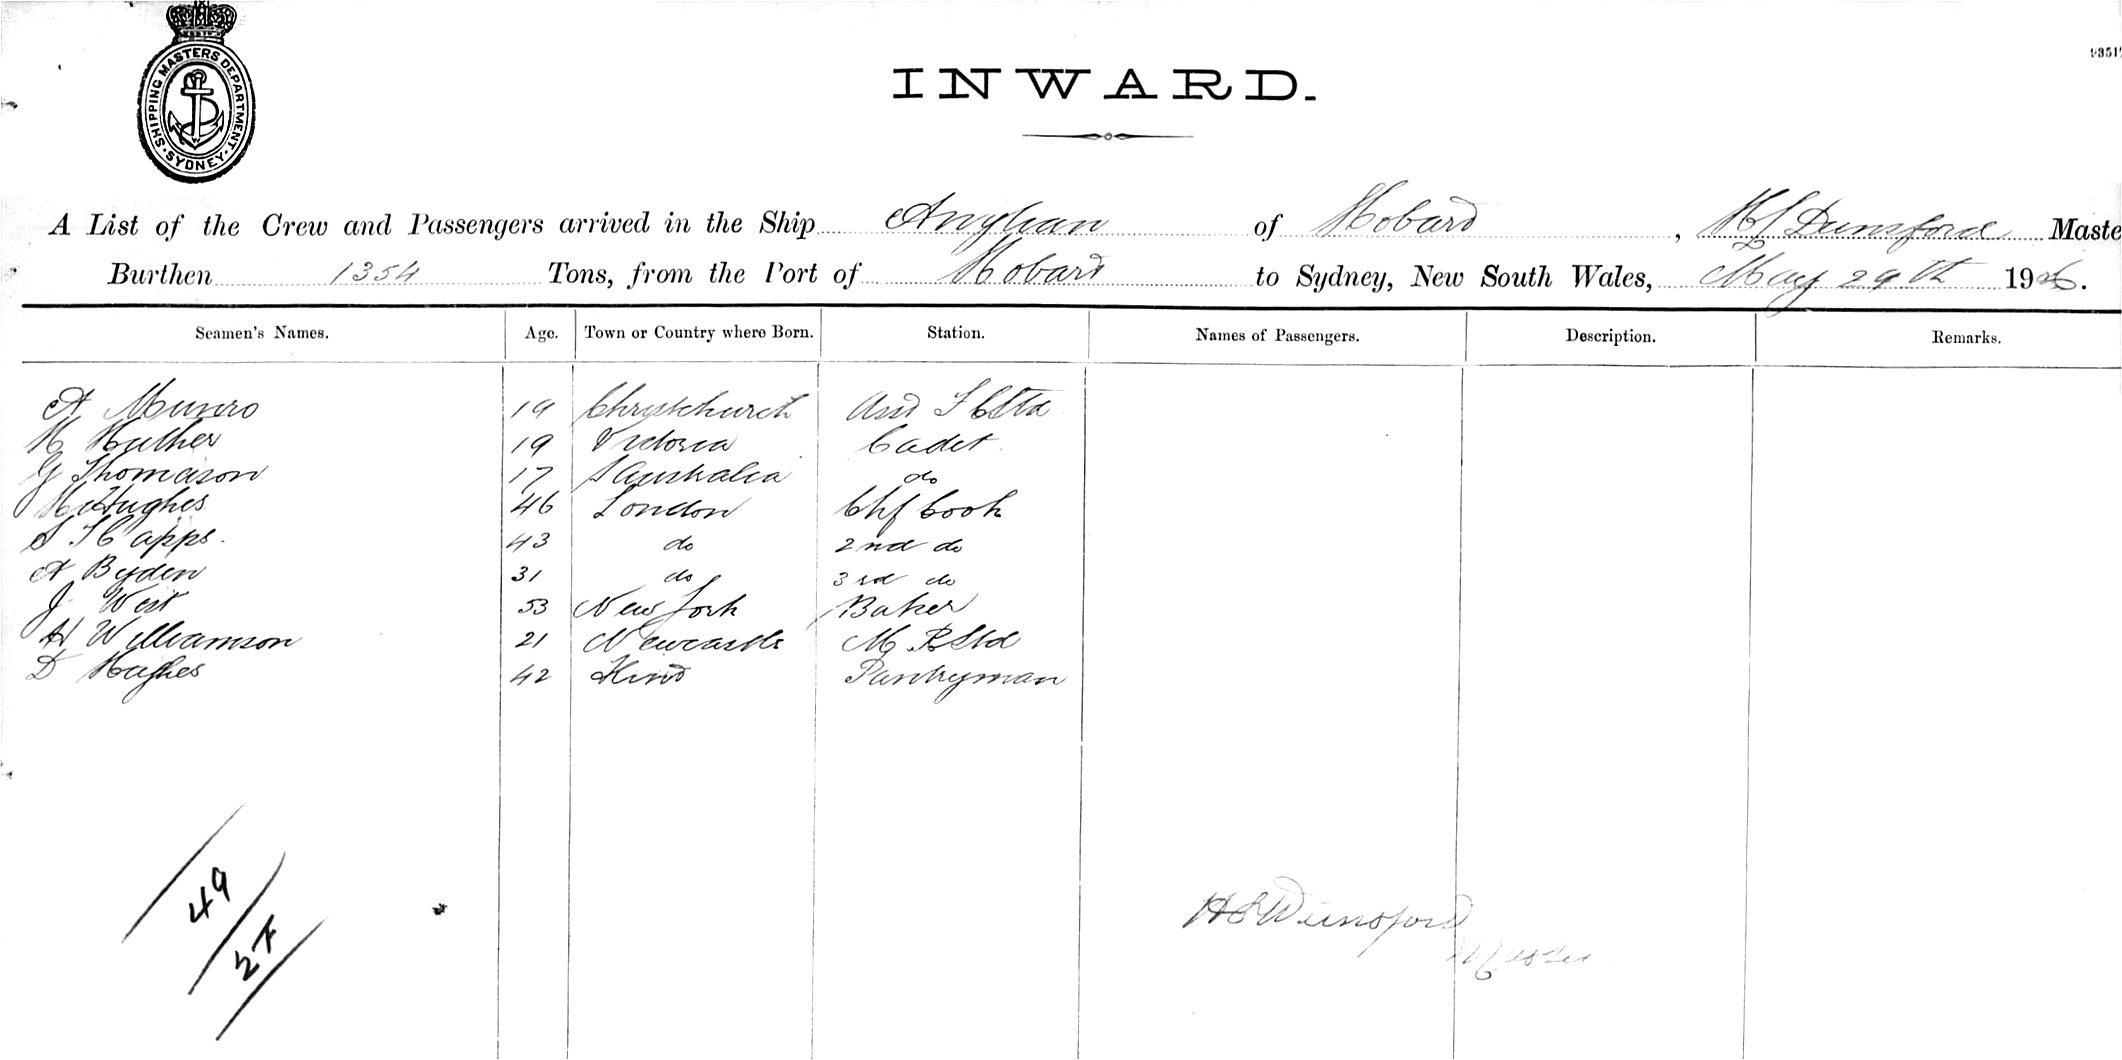 SHIPPING MASTERS DEPARTMENT. SYDNEY.
INWARD.
A List of the Crew and Passengers arrived in the Ship Anglian of Hobard, H S Dunsford Maste
Burthen 1354 Tons, from the Port of Hobard to Sydney, New South Wales, May 29th 19
Seamen's Names. Age. Town or Country where Born. Station. Names of Passengers. Description. Remarks.
A Munro 19 Christchurch Asst
H Huther 19 Victoria Cadet
G Thomason 17 S Australia do
H Hughes 46 London Chf Cook
S J Capps. 43 do 2nd do
A Byden 31 do 3rd do
J West 53 New York Baker
H Williamson 21 Newcastle M R Std
D Hughes 42 Pantryman
49
27
H S Dunsford
Master